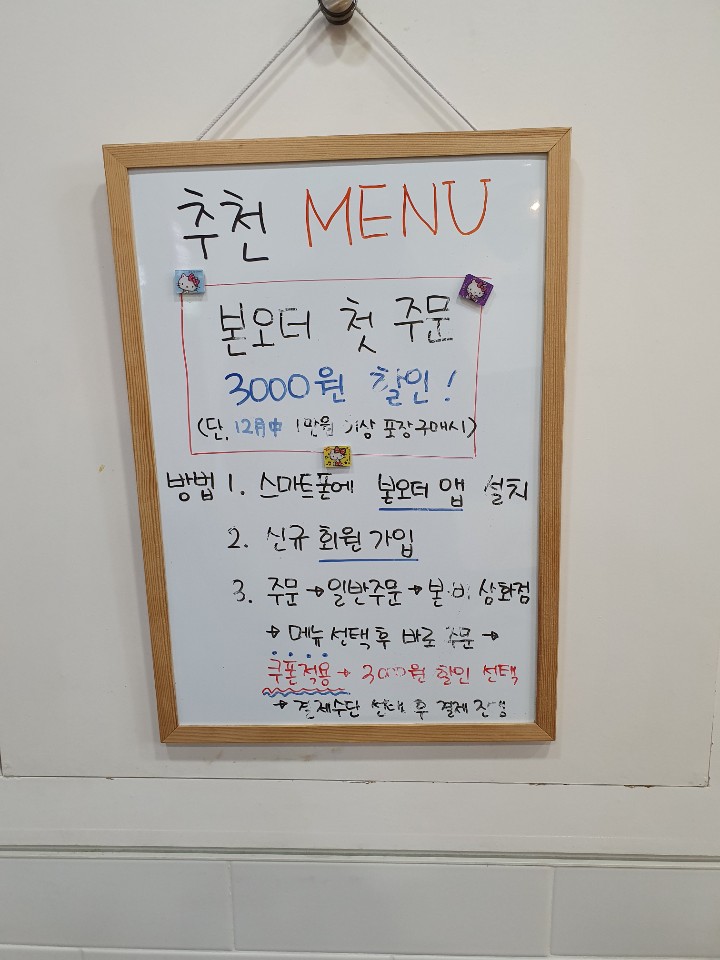 추천 MENU
본오더 첫 주문
3000원 할인!
(단, 12月中 1만원 이상 포장구매시)
방법 1. 스마트폰에 본오더 앱 설치
2. 신규 회원 가입
3. 주문→일반주문→본·비 삼화점
→ 메뉴 선택 후 바로 주문 →
쿠폰적용→ 3000원 할인 선택
→ 결제수단 선택 후 결제 진행